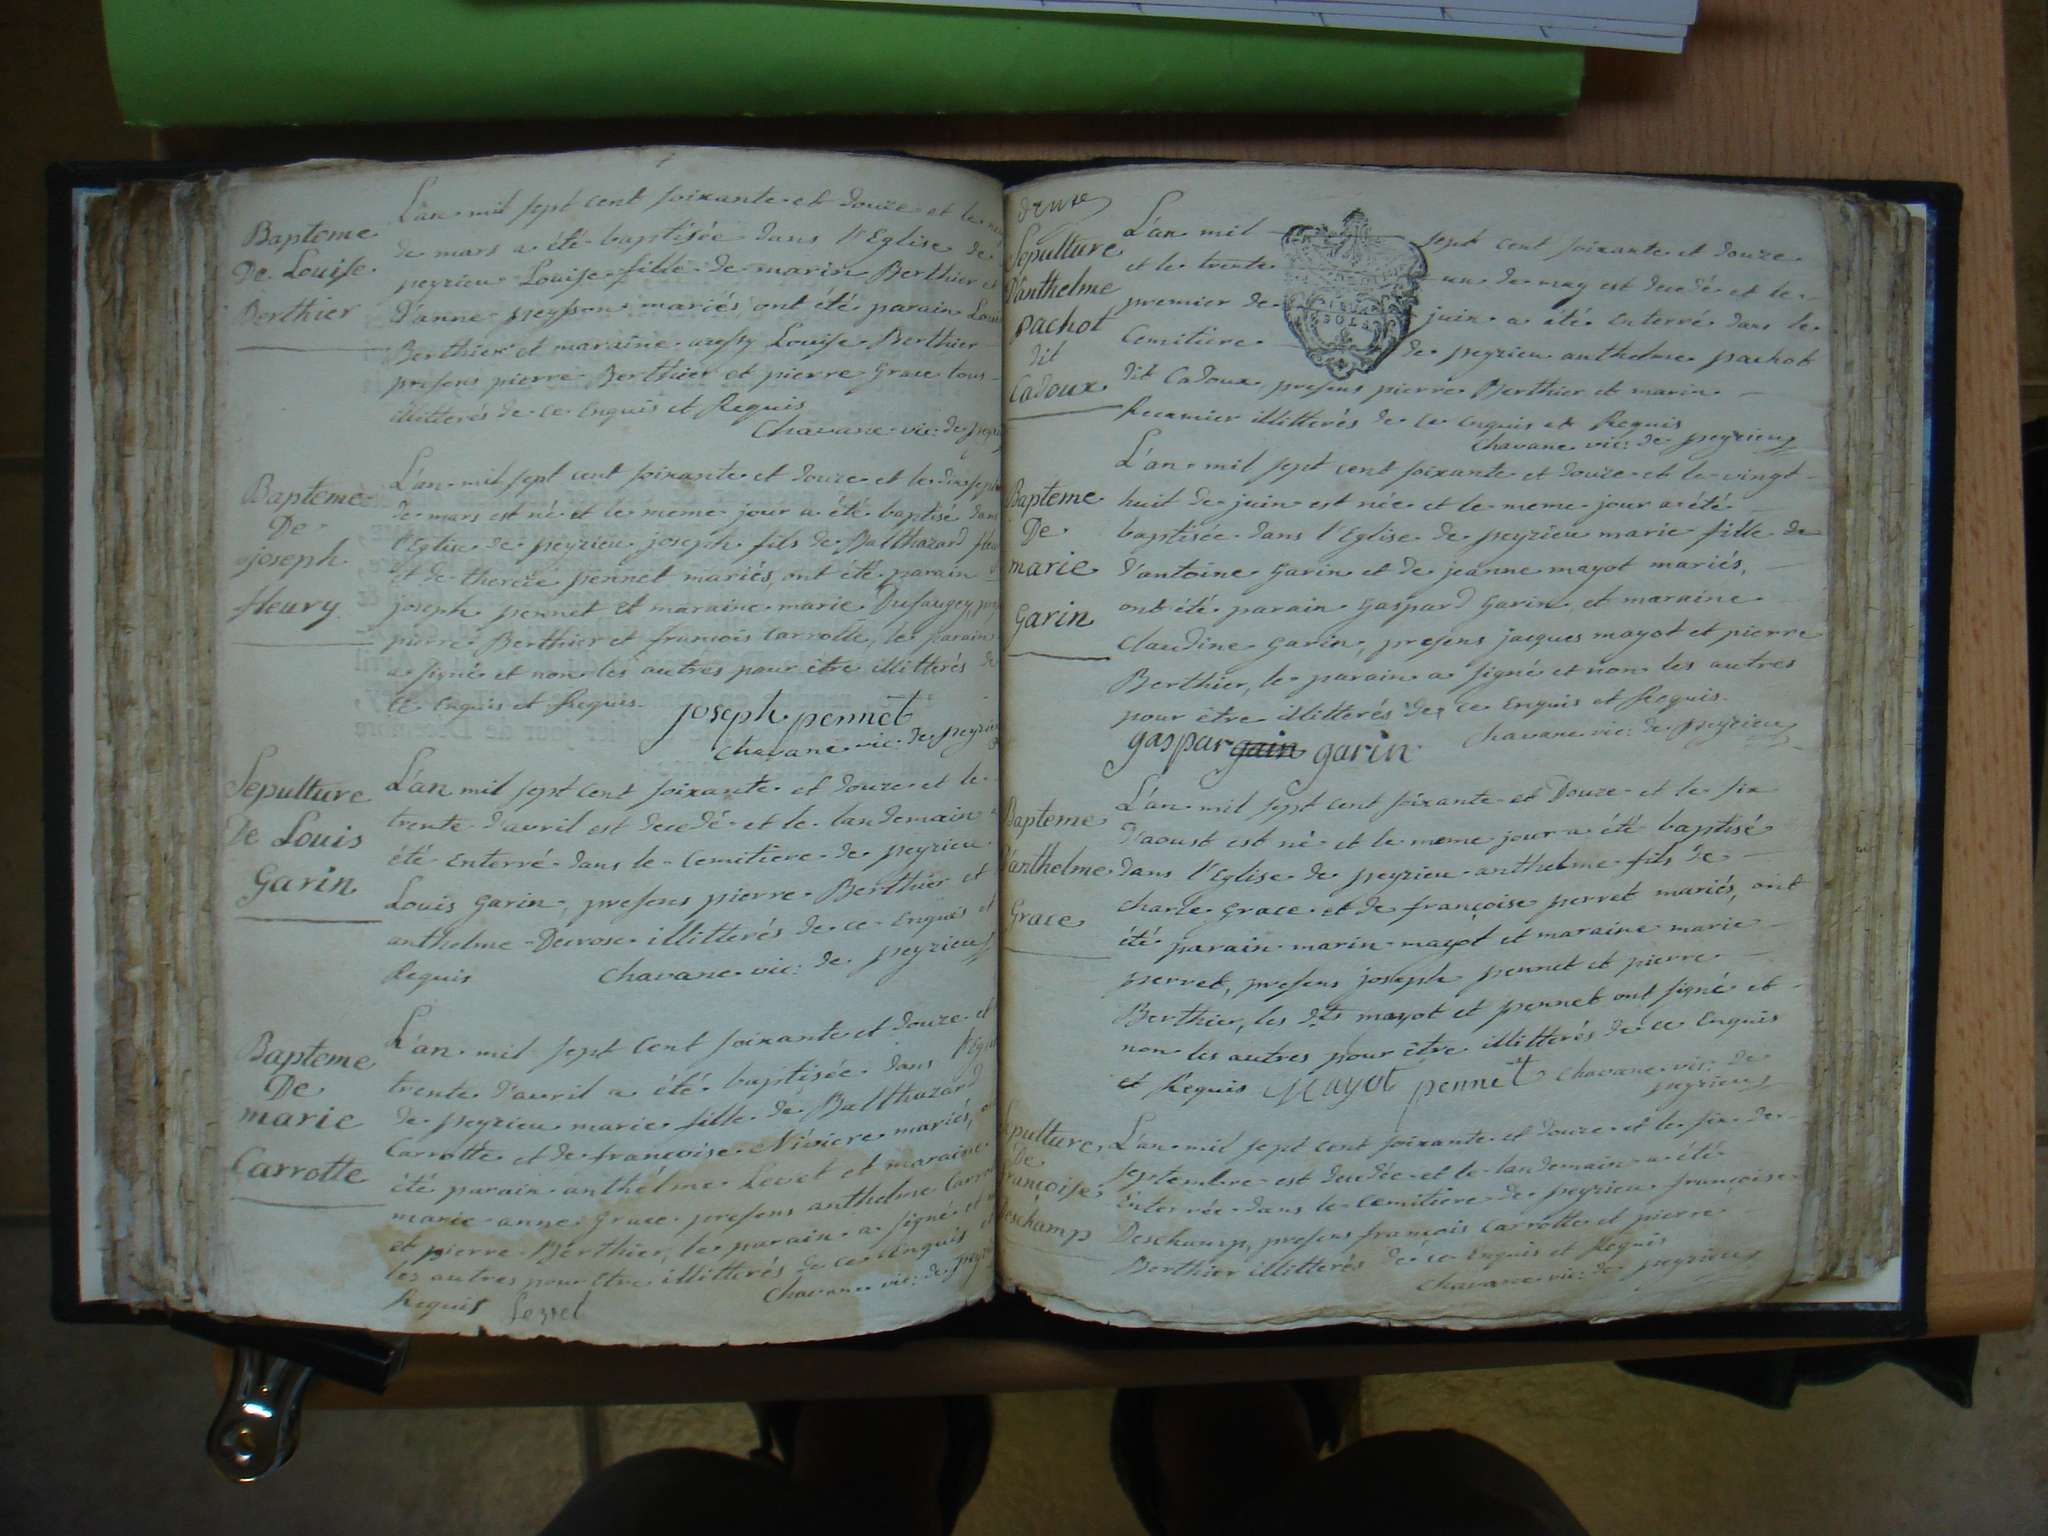 Bapteme
De Louise
Berthier
L'an mil sept cent soixante et douze et le
de mars a été baptisée dans l'Eglise de
peyrieu Louise fille de marin Berthier et
D'anne peysson mariés ont été parain Louis
Berthier et maraine aussy Louise Berthier
presens pierre Berthier et pierre Grace tous
illitterés de ce Enquis et Requis
Chavane vic: de peyrieu
Bapteme
De
joseph
fleury
L'an mil sept cent soixante et douze et le dix sept
de mars est né et le meme jour a été baptisé dans
l'Eglise de peyrieu joseph fils de Balthazard fleury
et de therese pennet mariés, ont été parain
joseph pennet et maraine marie Dufaugey
pierre Berthier et francois Carrotte, le parain
a signé et non les autres pour être illitterés de
ce Enquis et Requis
joseph pennet
Chavane vic: de peyrieu
Sepulture
De Louis
Garin
L'an mil sept cent soixante et douze et le
trente d'avril est decedé et le landemain a
été Enterré dans le Cemitiere de peyrieu
Louis Garin, presens pierre Berthier et
anthelme Decrose illitterés de ce Enquis et
Requis Chavane vic: de peyrieu
Bapteme
De
marie
Carrotte
L'an mil sept cent soixante et douze et
trente d'avril a été baptisée dans l'Eglise
de peyrieu marie fille de Balthazard
Carrotte et de francoise Niviere mariés,
été parain anthelme Levet et maraine
marie anne Grace presens anthelme Carrotte
et pierre Berthier, le parain a signé et
les autres pour être illitterés de ce Enquis et
Requis Chavane vic: de peyrieu
douze
Sepulture
D'anthelme
pachot
dit
Cadoux
L'an mil sept cent soixante et douze
et le trente un de may est decedé et le
premier de juin a été Enterré dans le
Cemitiere de peyrieu anthelme pachot
dit Cadoux, presens pierre Berthier et marin
Recamier illitterés de ce Enquis et Requis
Chavane vic: de peyrieu
SOLS
Bapteme
De
marie
Garin
L'an mil sept cent soixante et douze et le vingt
huit de juin est née et le meme jour a été
baptisée dans l'Eglise de peyrieu marie fille de
d'antoine Garin et de jeanne mayot mariés,
ont été parain Gaspard Garin et maraine
Claudine Garin, presens jacques mayot et pierre
Berthier, le parain a signé et non les autres
pour être illitterés de ce Enquis et Requis.
gaspar gain garin Chavane vic: de peyrieu
Bapteme
D'anthelme
Grace
L'an mil sept cent soixante et Douze et le six
D'aoust est né et le meme jour a été baptisé
dans l'Eglise de peyrieu anthelme fils de
Charle Grace et de françoise perret mariés, ont
été parain marin mayot et maraine marie
perret, presens joseph pennet et pierre
Berthier, les dts mayot et pennet ont signé et
non les autres pour être illitterés de ce Enquis
et Requis Mayot pennet Chavane vic: de
peyrieu
Sepulture
De
françoise
Deschamp
L'an mil sept cent soixante et douze et le six de
septembre est decedée et le landemain a été
Enterrée dans le Cemitiere de peyrieu françoise
Deschamp, presens francois Carrotte et pierre
Berthier illitterés de ce Enquis et Requis
Chavane vic: de peyrieu